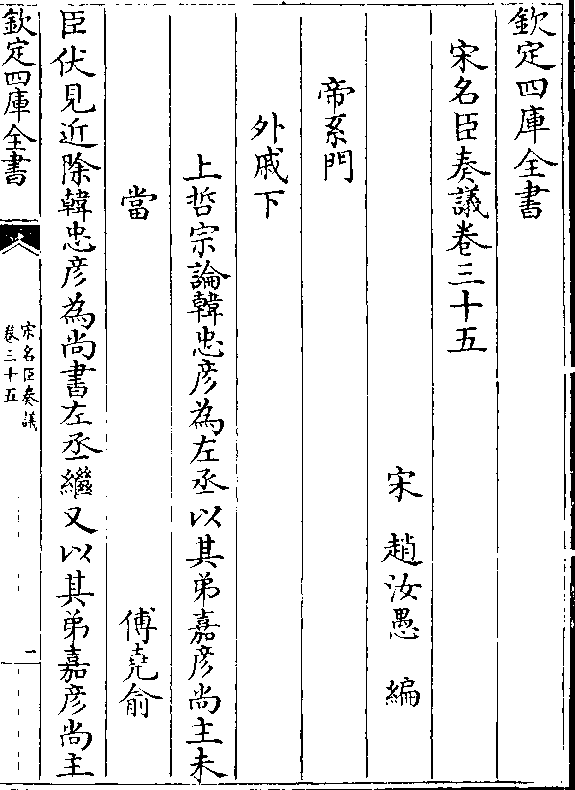 欽定四庫全書
宋名臣奏議卷三十五
宋 趙汝愚 編
帝系門
外戚下
上哲宗論韓忠彦為左丞以其弟嘉彦尚主未
當 傅堯俞
臣伏見近除韓忠彦為尚書左丞繼又以其弟嘉彦尚主
欽定四庫全書
宋名臣奏議
卷三十五
一